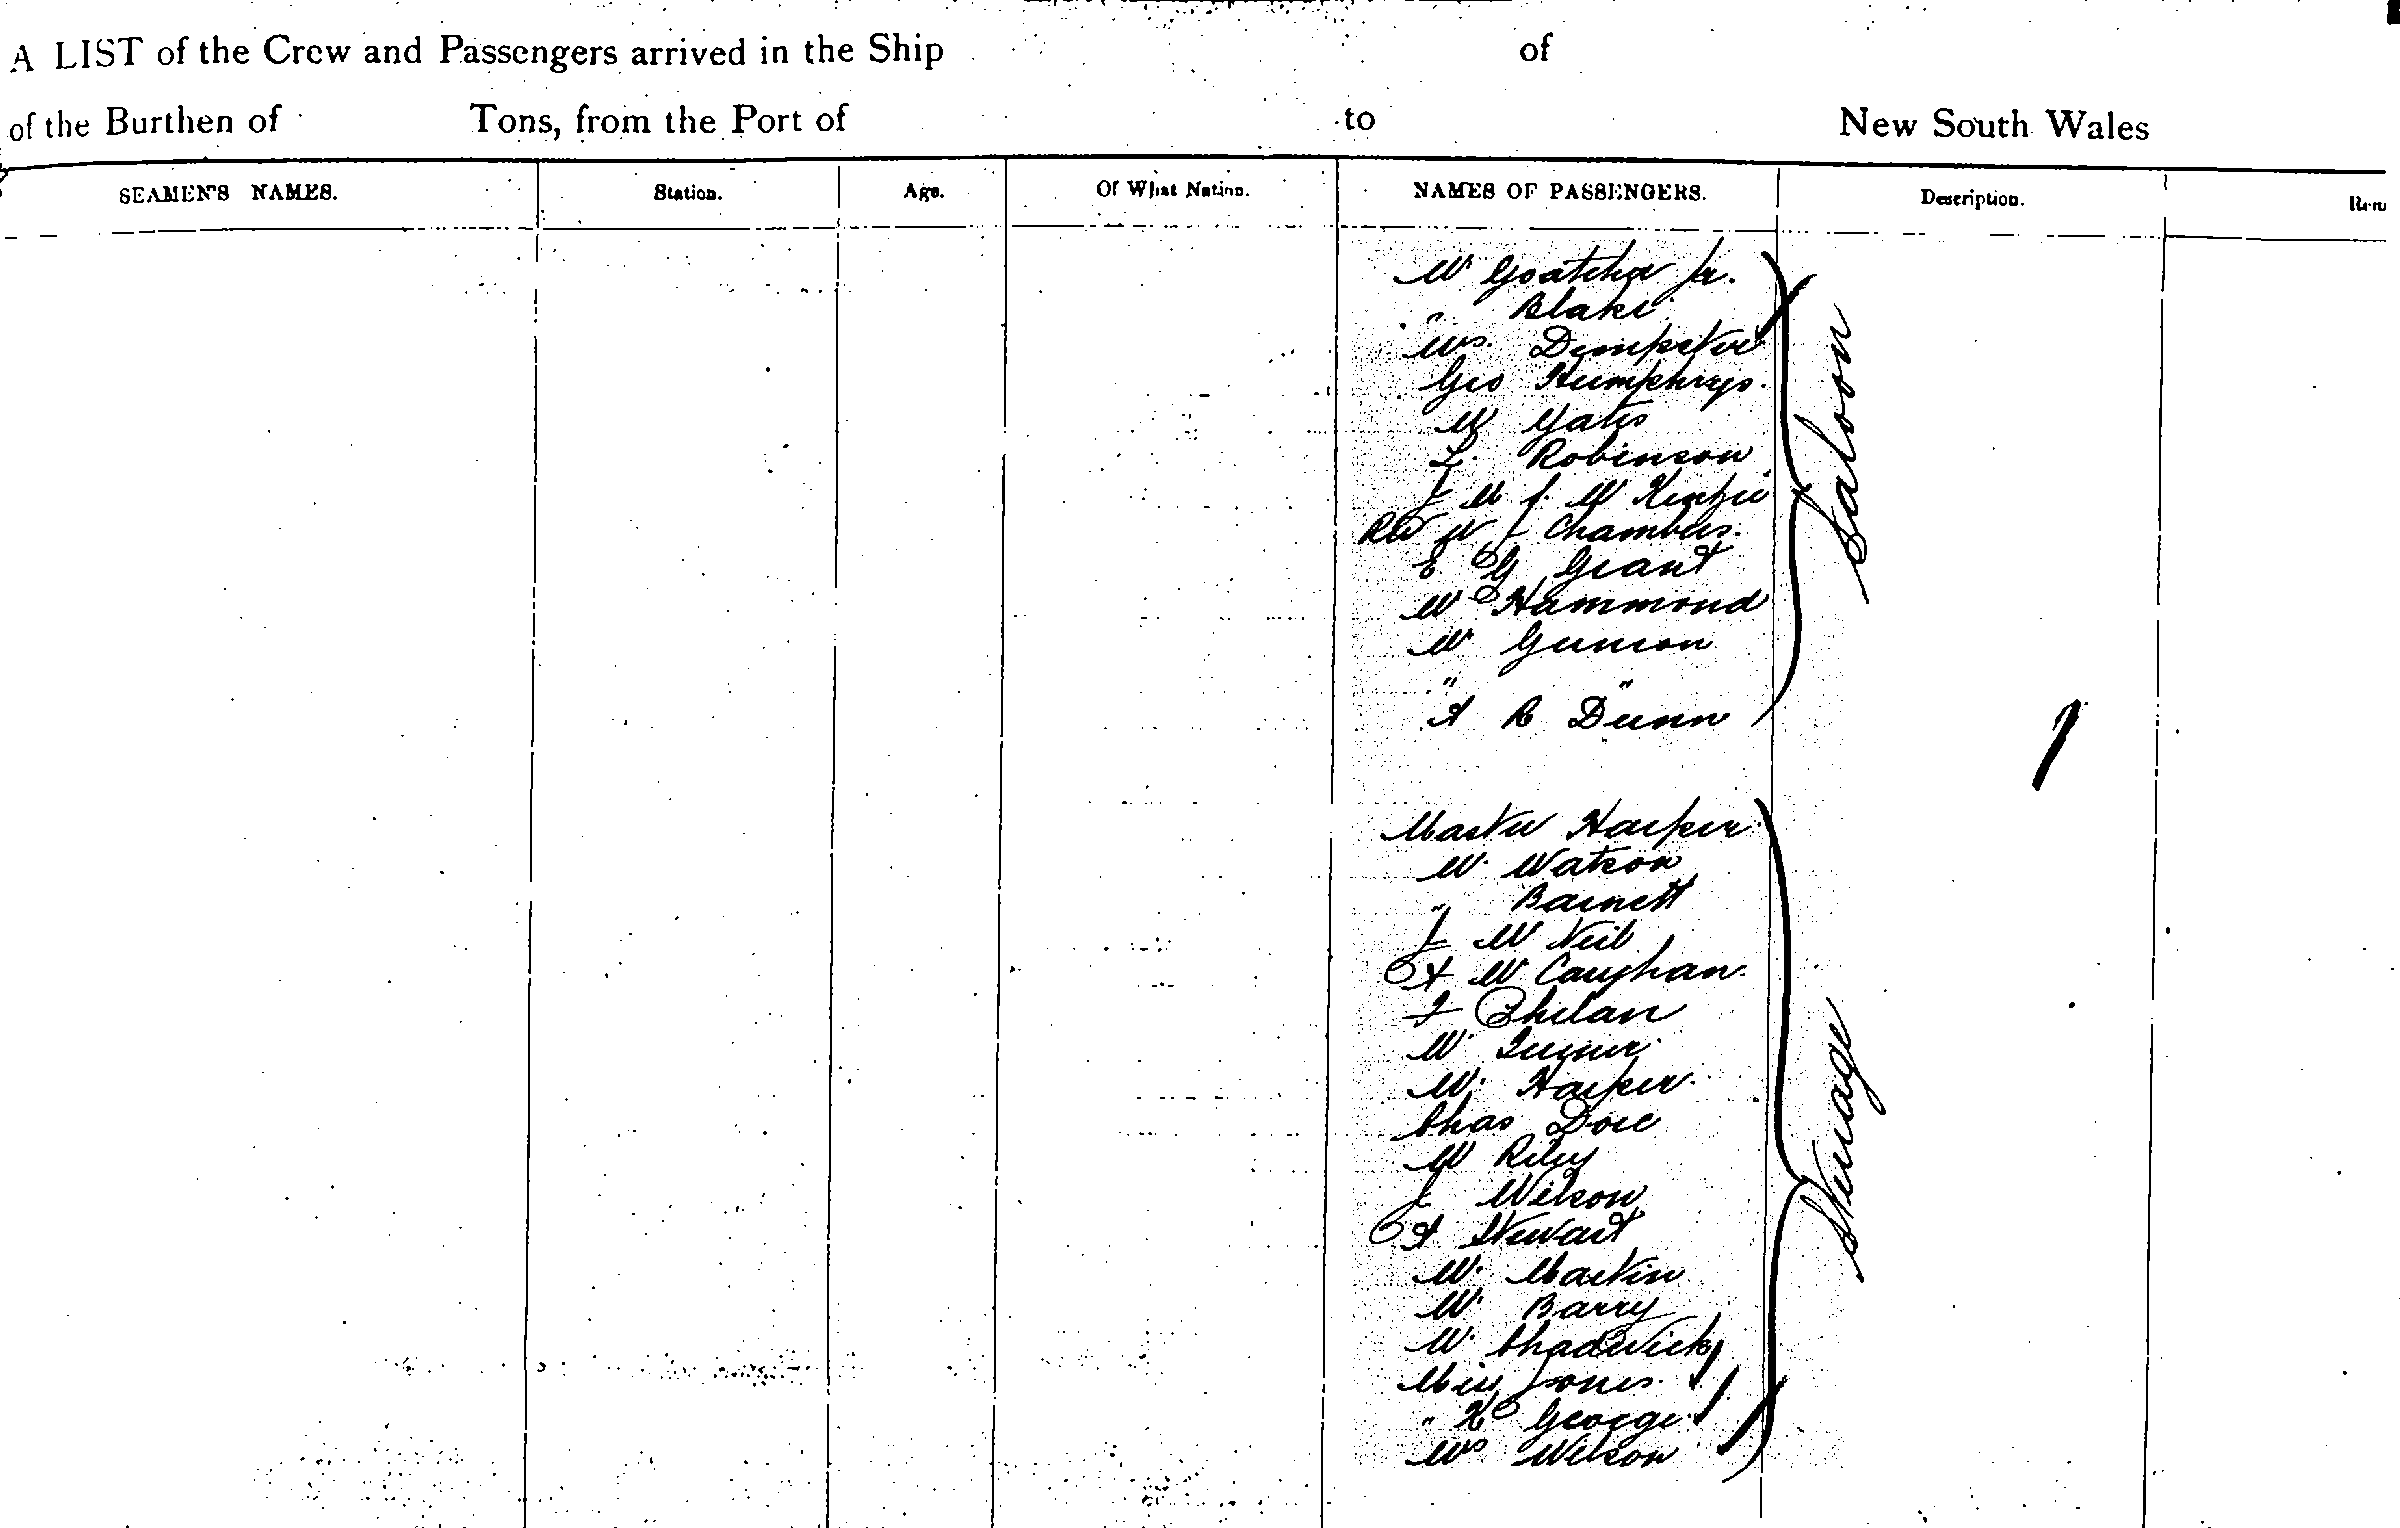 A LIST of the Crew and Passengers arrived in the Ship of
of the Burthen of Tons, from the Port of to New South Wales
SEAMEN'S NAMES. Station. Age. Of What Nation. NAMES OF PASSENGERS. Description.
Mr Goatcher Jr.
" Blake
Mrs Dempster
Geo Humphrys.
Mr Yates
L. Robinson
J M J. Mc Kenzie
Rev W J Chambers.
E G Grant
Mr Hammond
Mr Gunson
" "
A R Dunn
Saloon
Master Harper
Mr Watson
" Barnett
J Mc Neil
A Mc Caughan
F Phelan
Mr
Mr Harper
Chas Dore
Mr Riley
J Wilson
A Stewart
Mr Martin
Mr Barry
Mr Chadwick
Miss Jones
" K George
Mrs Wilson
Steerage